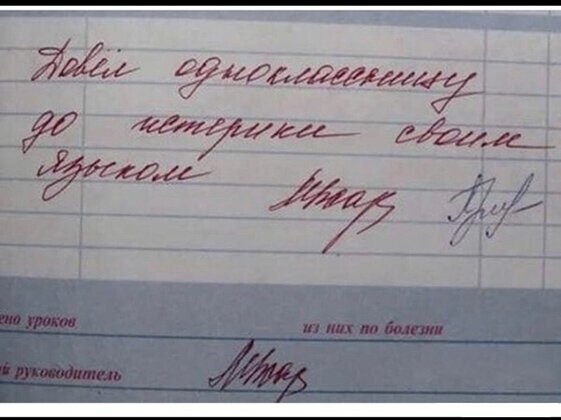 Довёл одноклассницу
до истерики своим
языком
ено уроков
из них по болезни
й руководитель